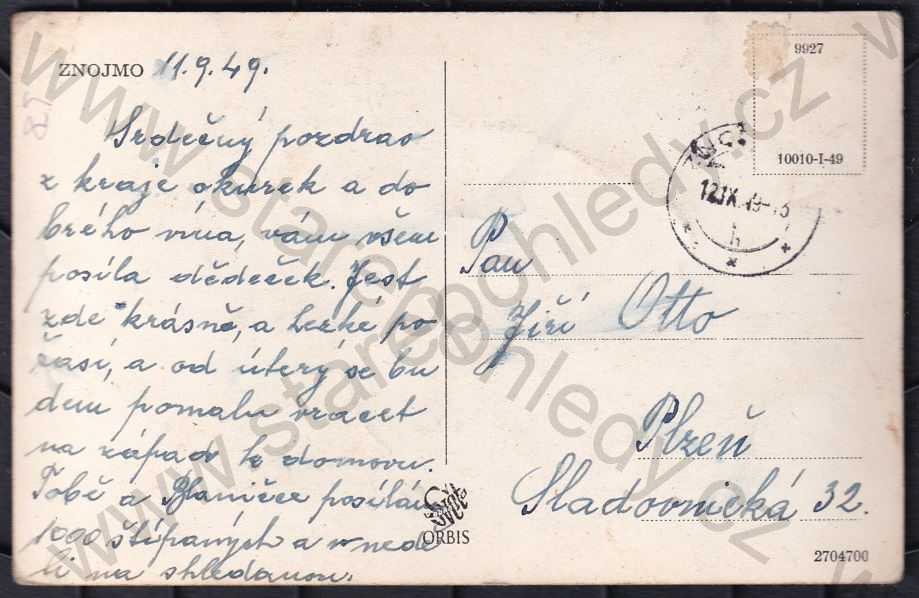 ZNOJMO 11.9.49.
Srdečný pozdrav
z kraje okurek a do
brého vína, vám všem
posílá dědeček. Jest
zde krásně, a horké po
časí, a od úterý se bu
dem pomalu vracet
na západ k domovu.
Tobě a Blaničce posílám
1000 štípaných a v nedě
li na shledanou.
9927
10010-I-49
12.IX.49-13
Pan
Jiří Otto
Plzeň
Sladovnická 32.
ORBIS
2704700
www.starepohledy.cz
www.starepohledy.cz